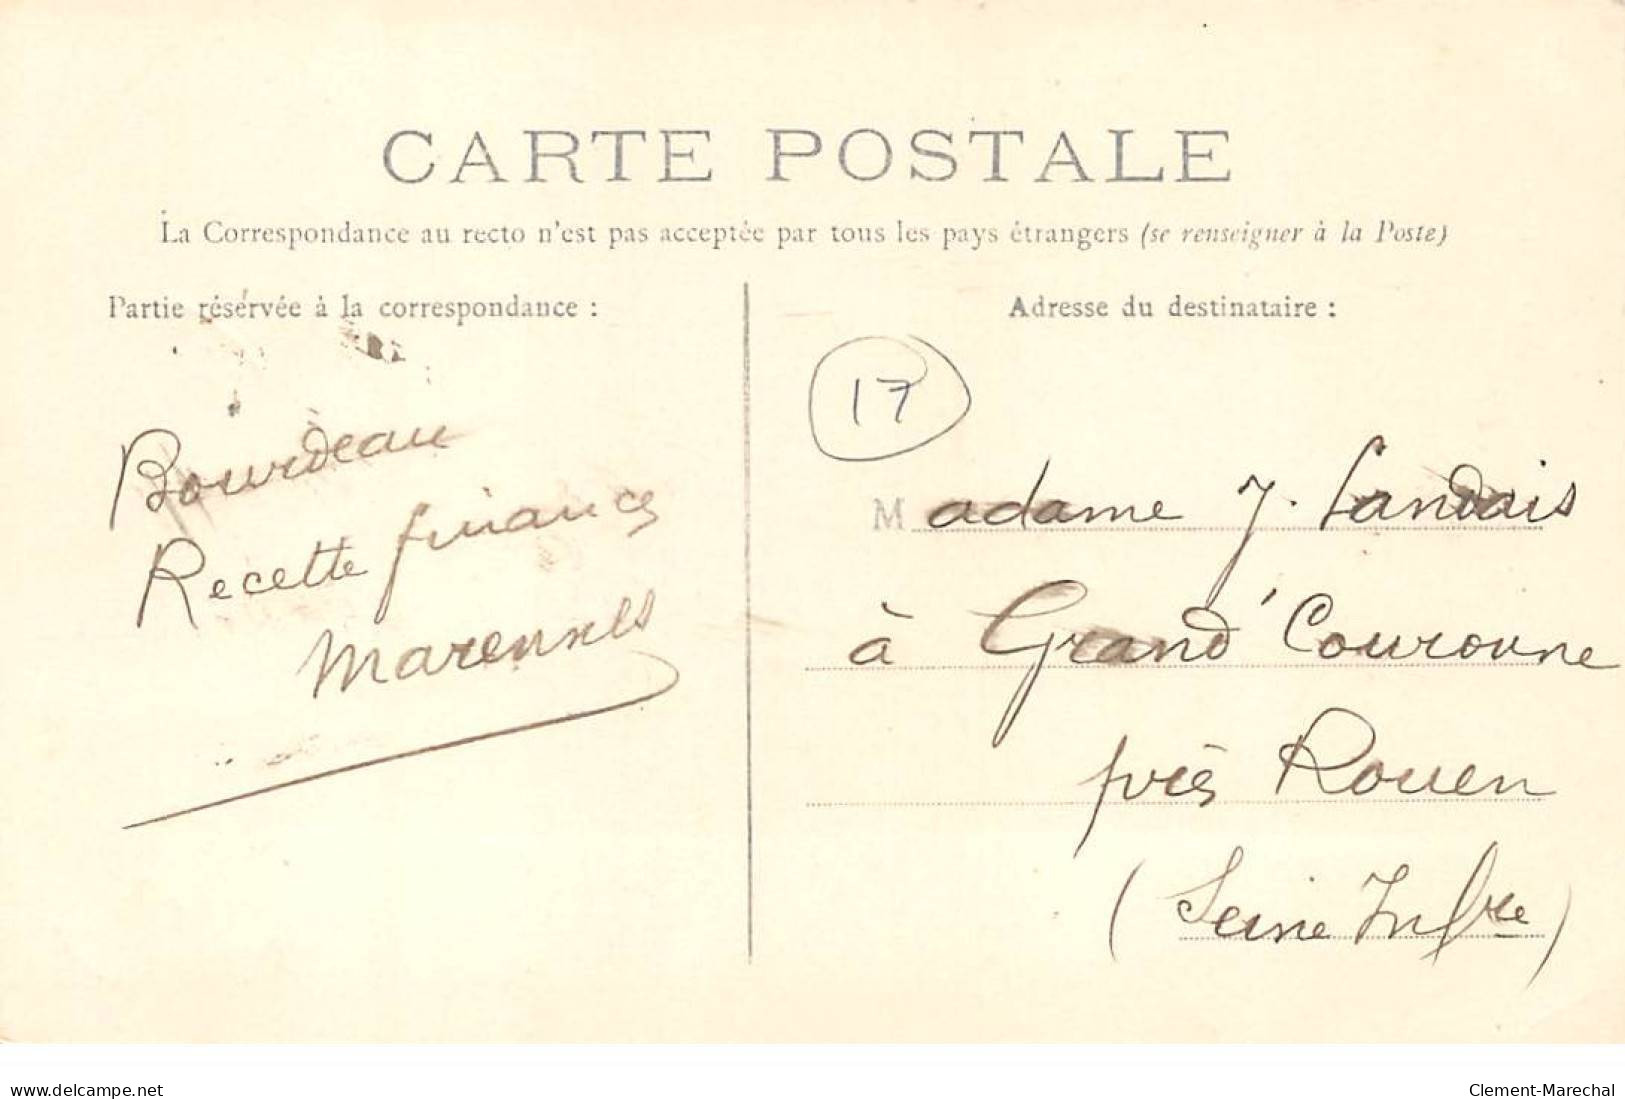 CARTE POSTALE
La Correspondance au recto n'est pas acceptée par tous les pays étrangers (se renseigner à la Poste)
Partie réservée à la correspondance :
Bourdeau
Recette finances
Marennes
Adresse du destinataire :
17
Madame J. Landais
à Grand' Couronne
près Rouen
(Seine Infre)
www.delcampe.net
Clement-Marechal